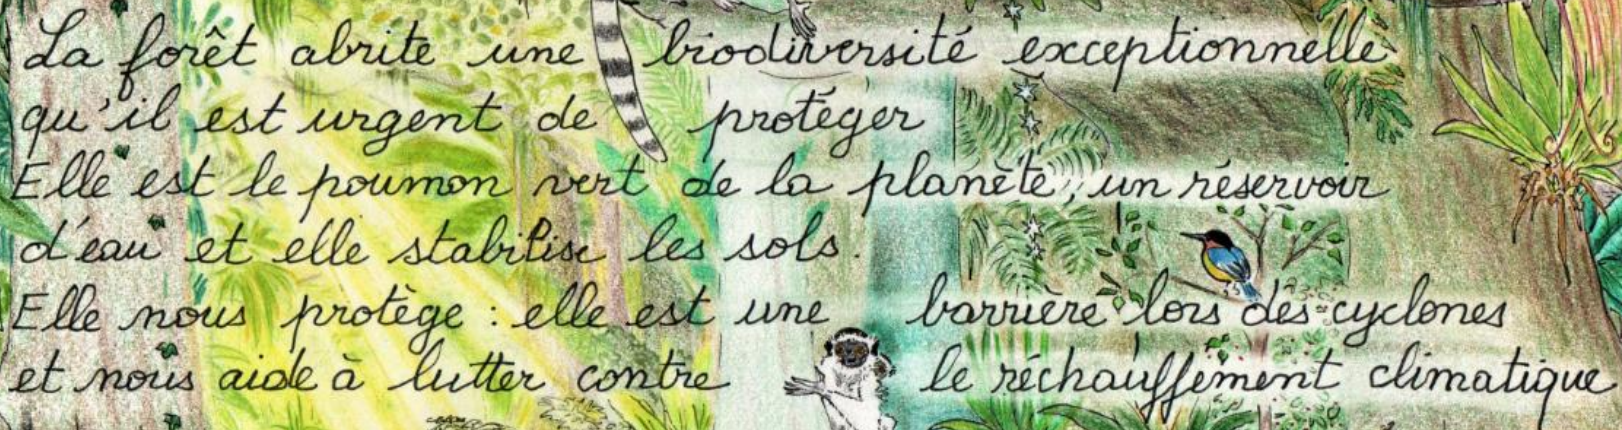 La forêt abrite une biodiversité exceptionnelle
qu'il est urgent de protéger
Elle est le poumon vert de la planète, un réservoir
d'eau et elle stabilise les sols.
Elle nous protège : elle est une barrière lors des cyclones
et nous aide à lutter contre le réchauffement climatique